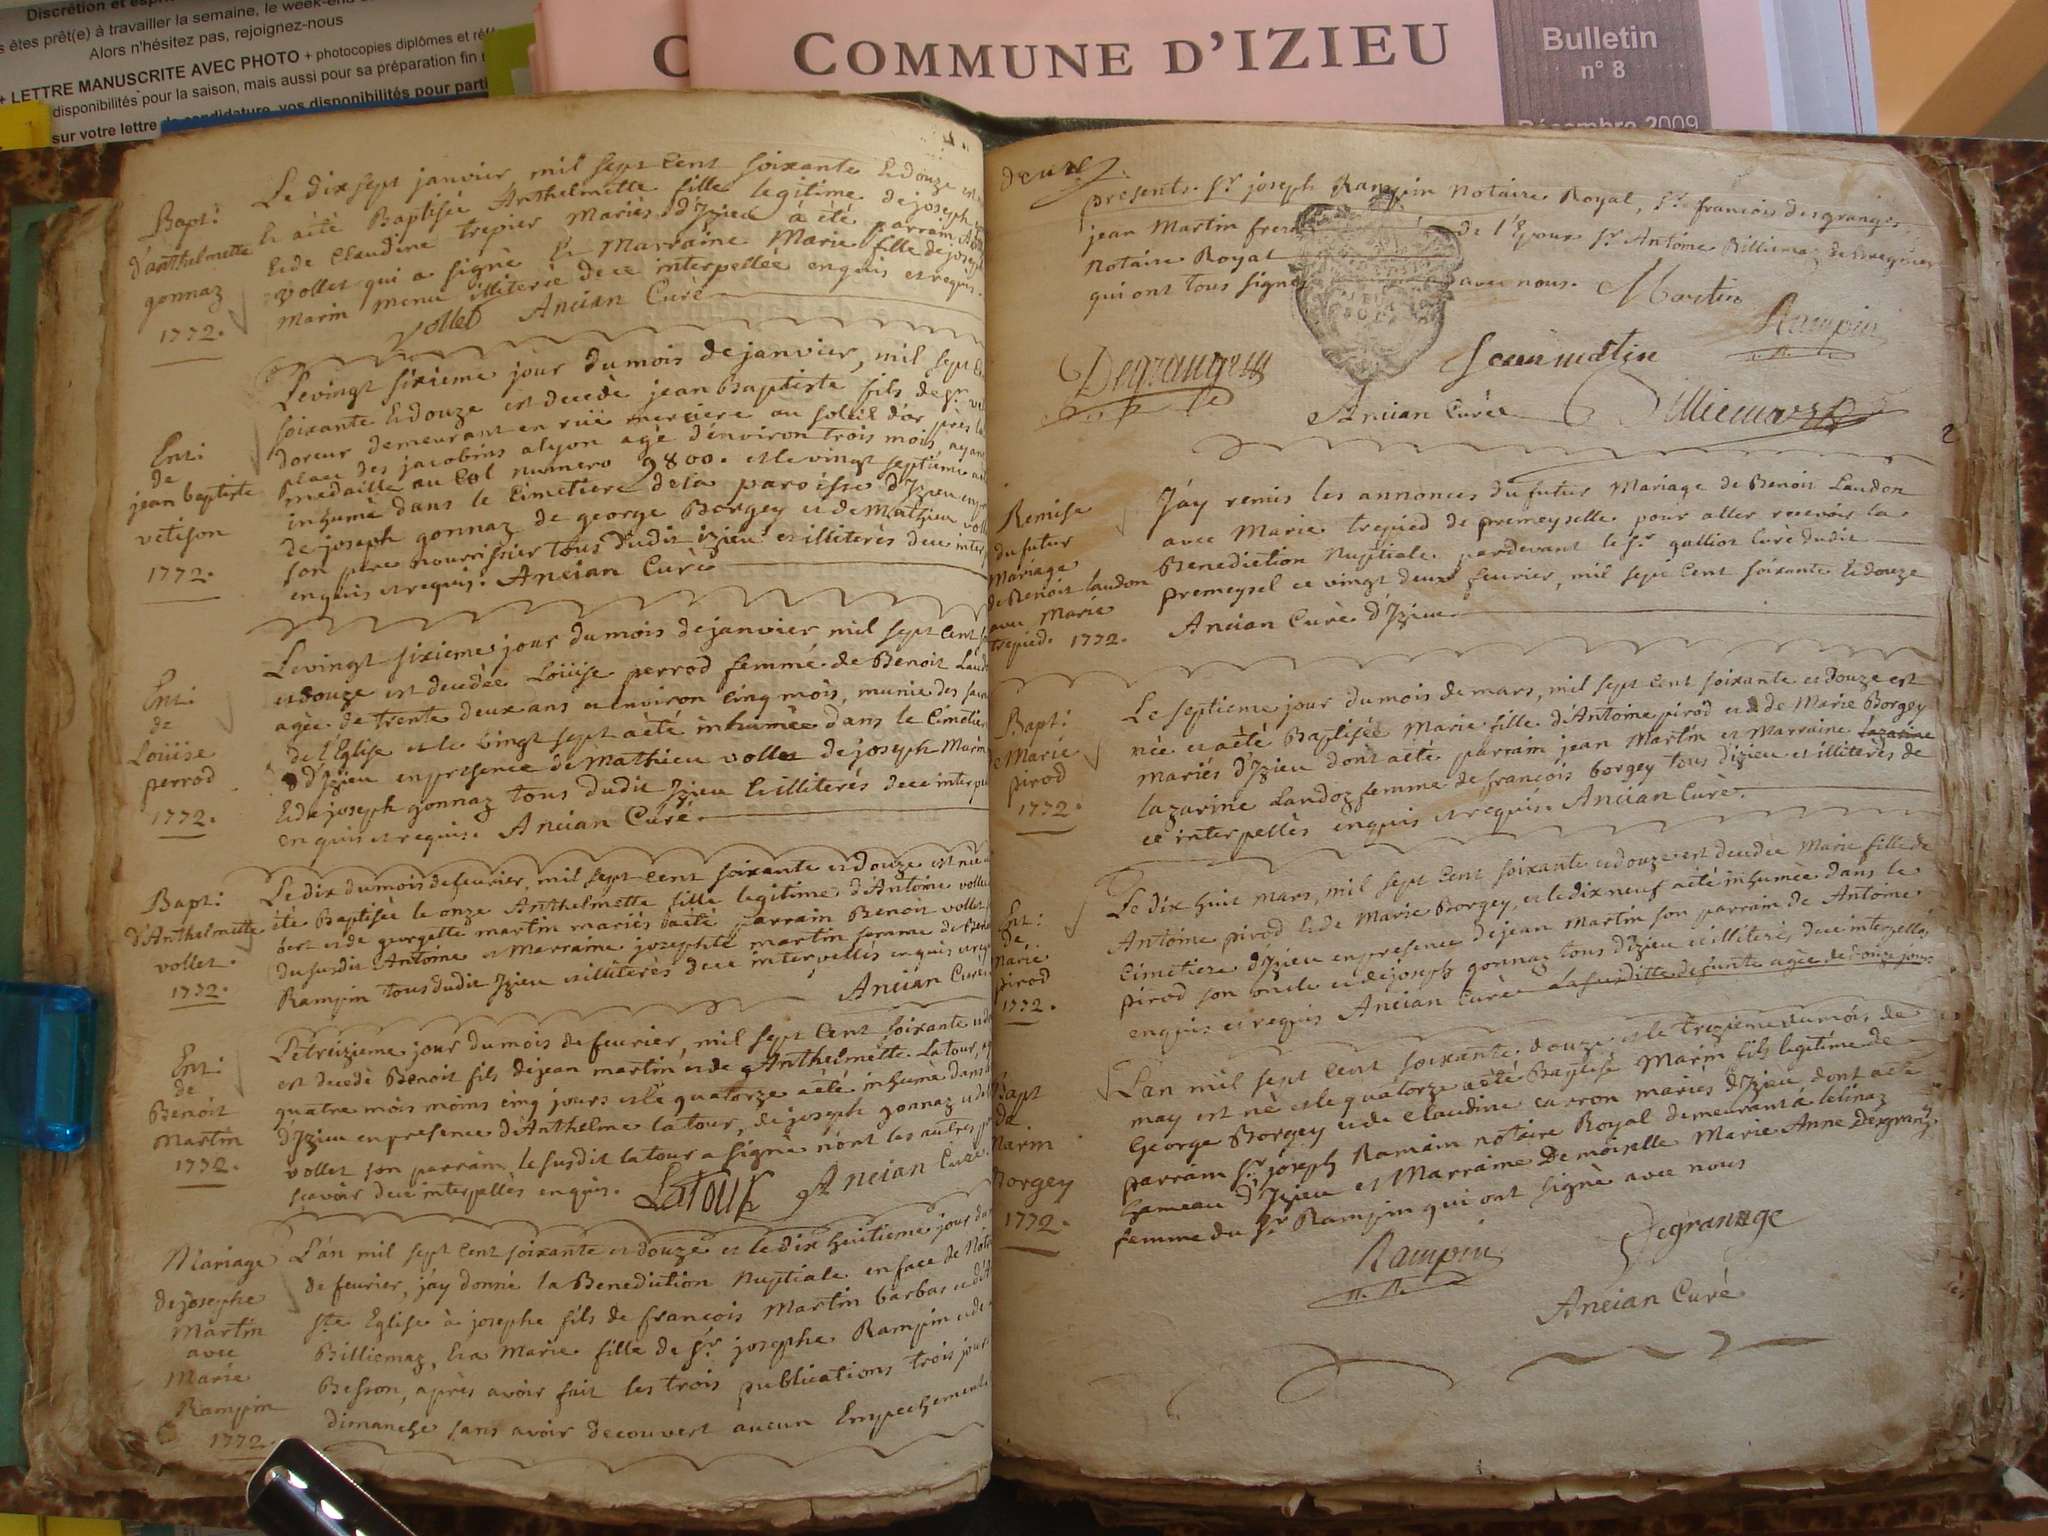 Discrétion et esp
s êtes prêt(e) à travailler la semaine, le week-end
Alors n'hésitez pas, rejoignez-nous
+ LETTRE MANUSCRITE AVEC PHOTO + photocopies diplômes et
disponibilités pour la saison, mais aussi pour sa préparation fin
sur votre lettre de candidature, vos disponibilités pour parti
C
COMMUNE D'IZIEU
Bulletin
n° 8
Décembre 2009
Bapt:
d'anthelmette
gonnaz
1772.
Le dix sept janvier mil sept Cent soixante & douze est
& aèté Baptisée Anthelmette fille legitime de joseph
& de Claudine trepier Mariés d'Izieu à èté parrain
vollet qui a signé & Marraine Marie fille de joseph
Marin Menu illiterée de ce interpellée enquis et requis.
Vollet Ancian Curè
Ent:
de
jean baptiste
vetison
1772.
Le vingt sixieme jour du mois de janvier, mil sept
soixante & douze est decedé jean Baptiste fils de sr
doreur demeurant en ruë merciere au soleil d'or près la
place des jacobins a lyon agé d'environ trois mois ayant
medaille au Col numero 9800. et le vingt septieme
inhumé dans le Cimetiere de la paroisse d'Izieu en
de joseph gonnaz de george Borgey et de Mathieu voll
son pere nourrissier tous dudit izieu et illiterés de ce inter
enquis et requis. Ancian Curè
Ent:
de
Loüise
perrod
1772.
Le vingt sixieme jour du mois de janvier mil sept Cent
et douze est decedée Loüise perrod femme de Benoit Laud
agée de trente deux ans et environ Cinq mois, munie des
de l'Eglise et le vingt sept aèté inhumée dans le Cimetie
d'Izieu en presence de Mathieu vollet de joseph Marin
& de joseph gonnaz tous dudit Izieu & illiterés de ce inter
enquis et requis. Ancian Curé.
Bapt:
d'Anthelmette
vollet.
1772.
Le dix du mois de fevrier, mil sept Cent soixante et douze est née
ète Baptisée le onze Anthelmette fille legitime d'Antoine vollet
bert et de georgette martin mariés aèté parrain Benoit vollet
du susdit Antoine et Marraine josephte martin femme de
Rampin tous dudit Izieu et illiterés de ce interpellés enquis et req
Ancian Curé
Ent:
de
Benoit
Martin
1772.
Le treizieme jour du mois de fevrier, mil sept Cent soixante
est decedé Benoit fils de jean martin et de Anthelmette Latour,
quatre mois moins cinq jours et le quatorze aèté inhumé dans
d'Izieu en presence d'Anthelme latour, de joseph gonnaz
vollet son parrain, le susdit latour a signé n'ont les autres p
sçavoir de ce interpellés enquis. LaTOUR Ancian Curé
Mariage
de josephe
Martin
avec
Marie
Rampin
1772.
L'an mil sept Cent soixante et douze et le dix huitieme jour du
de fevrier, j'ay donné la Benediction Nuptiale en face de Notre
Ste Eglise à josephe fils de françois Martin barbas
Billiemaz, & a Marie fille de Sr josephe Rampin et de
Besson, après avoir fait les trois publications trois jour
dimanche sans avoir decouvert aucun Empechement
deux
presents. sr joseph Rampin Notaire Royal, sr francois desgranges,
jean Martin frere de l'Epoux sr Antoine Billiemaz
Notaire Royal
qui ont tous signé avec nous. Martin
Rampin
Degranges
Jean matin
Ancian Curé
Billiemaz
2
Remise
du futur
Mariage
de Benoit laudon
avec Marie
trepied. 1772.
J'ay remis les annonces du futur Mariage de Benoit Laudon
avec Marie trepied de premeyselle pour aller recevoir la
Benediction Nuptiale pardevant le sr galliot Curé dudit
premeysel ce vingt deux fevrier, mil sept Cent soixante & douze
Ancian Curé d'Izieu
Bapt:
de Marie
pirod
1772.
Le septieme jour du mois de mars, mil sept Cent soixante et douze est
née et aèté Baptisée Marie fille d'Antoine pirod et de Marie Borgey
mariés d'Izieu dont aèté parrain jean Martin et Marraine lazarine
lazarine Landoz femme de françois borgey tous d'izieu et illiterés de
ce interpellés enquis et requis. Ancian Curé.
Ent:
de
Marie
pirod
1772.
Le dix huit Mars, mil sept Cent soixante et douze est decedée Marie fille de
Antoine pirod & de Marie Borgey, et le dix neuf aèté inhumée dans le
Cimetiere d'Izieu en presence de jean Martin son parrain de Antoine
pirod son oncle et de joseph gonnaz tous d'Izieu et illiterés de ce interpellés
enquis et requis Ancian Curé la susditte defunte agée de onze jours
Bapt
de
Marin
Borgey
1772.
L'an mil sept Cent soixante douze et le trezieme du mois de
may est né et le quatorze aèté Baptisé Marin fils legitime de
George Borgey et de Claudine carron mariés d'Izieu, dont aèté
parrain Sr joseph Rampin notaire Royal demeurant à lelinaz
hameau d'Izieu et Marraine Demoiselle Marie Anne Desgranges
femme du Sr Rampin qui ont signé avec nous
Rampin
Degrange
Ancian Curé